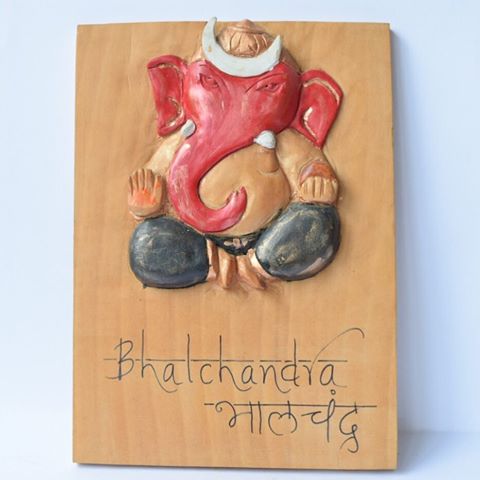 Bhalchandra
भालचंद्र